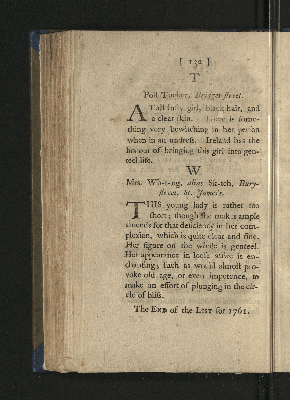 [ 132 ]
T
Poll Tucker, Bridges-street.
A Tall lusty girl, black hair, and
a clear skin. There is some-
thing very bewitching in her person
when in an undress. Ireland has the
honour of bringing this girl into gen-
teel life.
W
Mrs. Wh-t-ng, alias Sk-tch, Bury-
street, St. James's.
THIS young lady is rather too
short; though she makes ample
amends for that deficiency in her com-
plexion, which is quite clear and fine.
Her figure on the whole is genteel.
Her appearance in loose attire is en-
chanting; such as would almost pro-
voke old age, or even impotence, to
make an effort of plunging in the cir-
cle of bliss.
The END of the LIST for 1761.